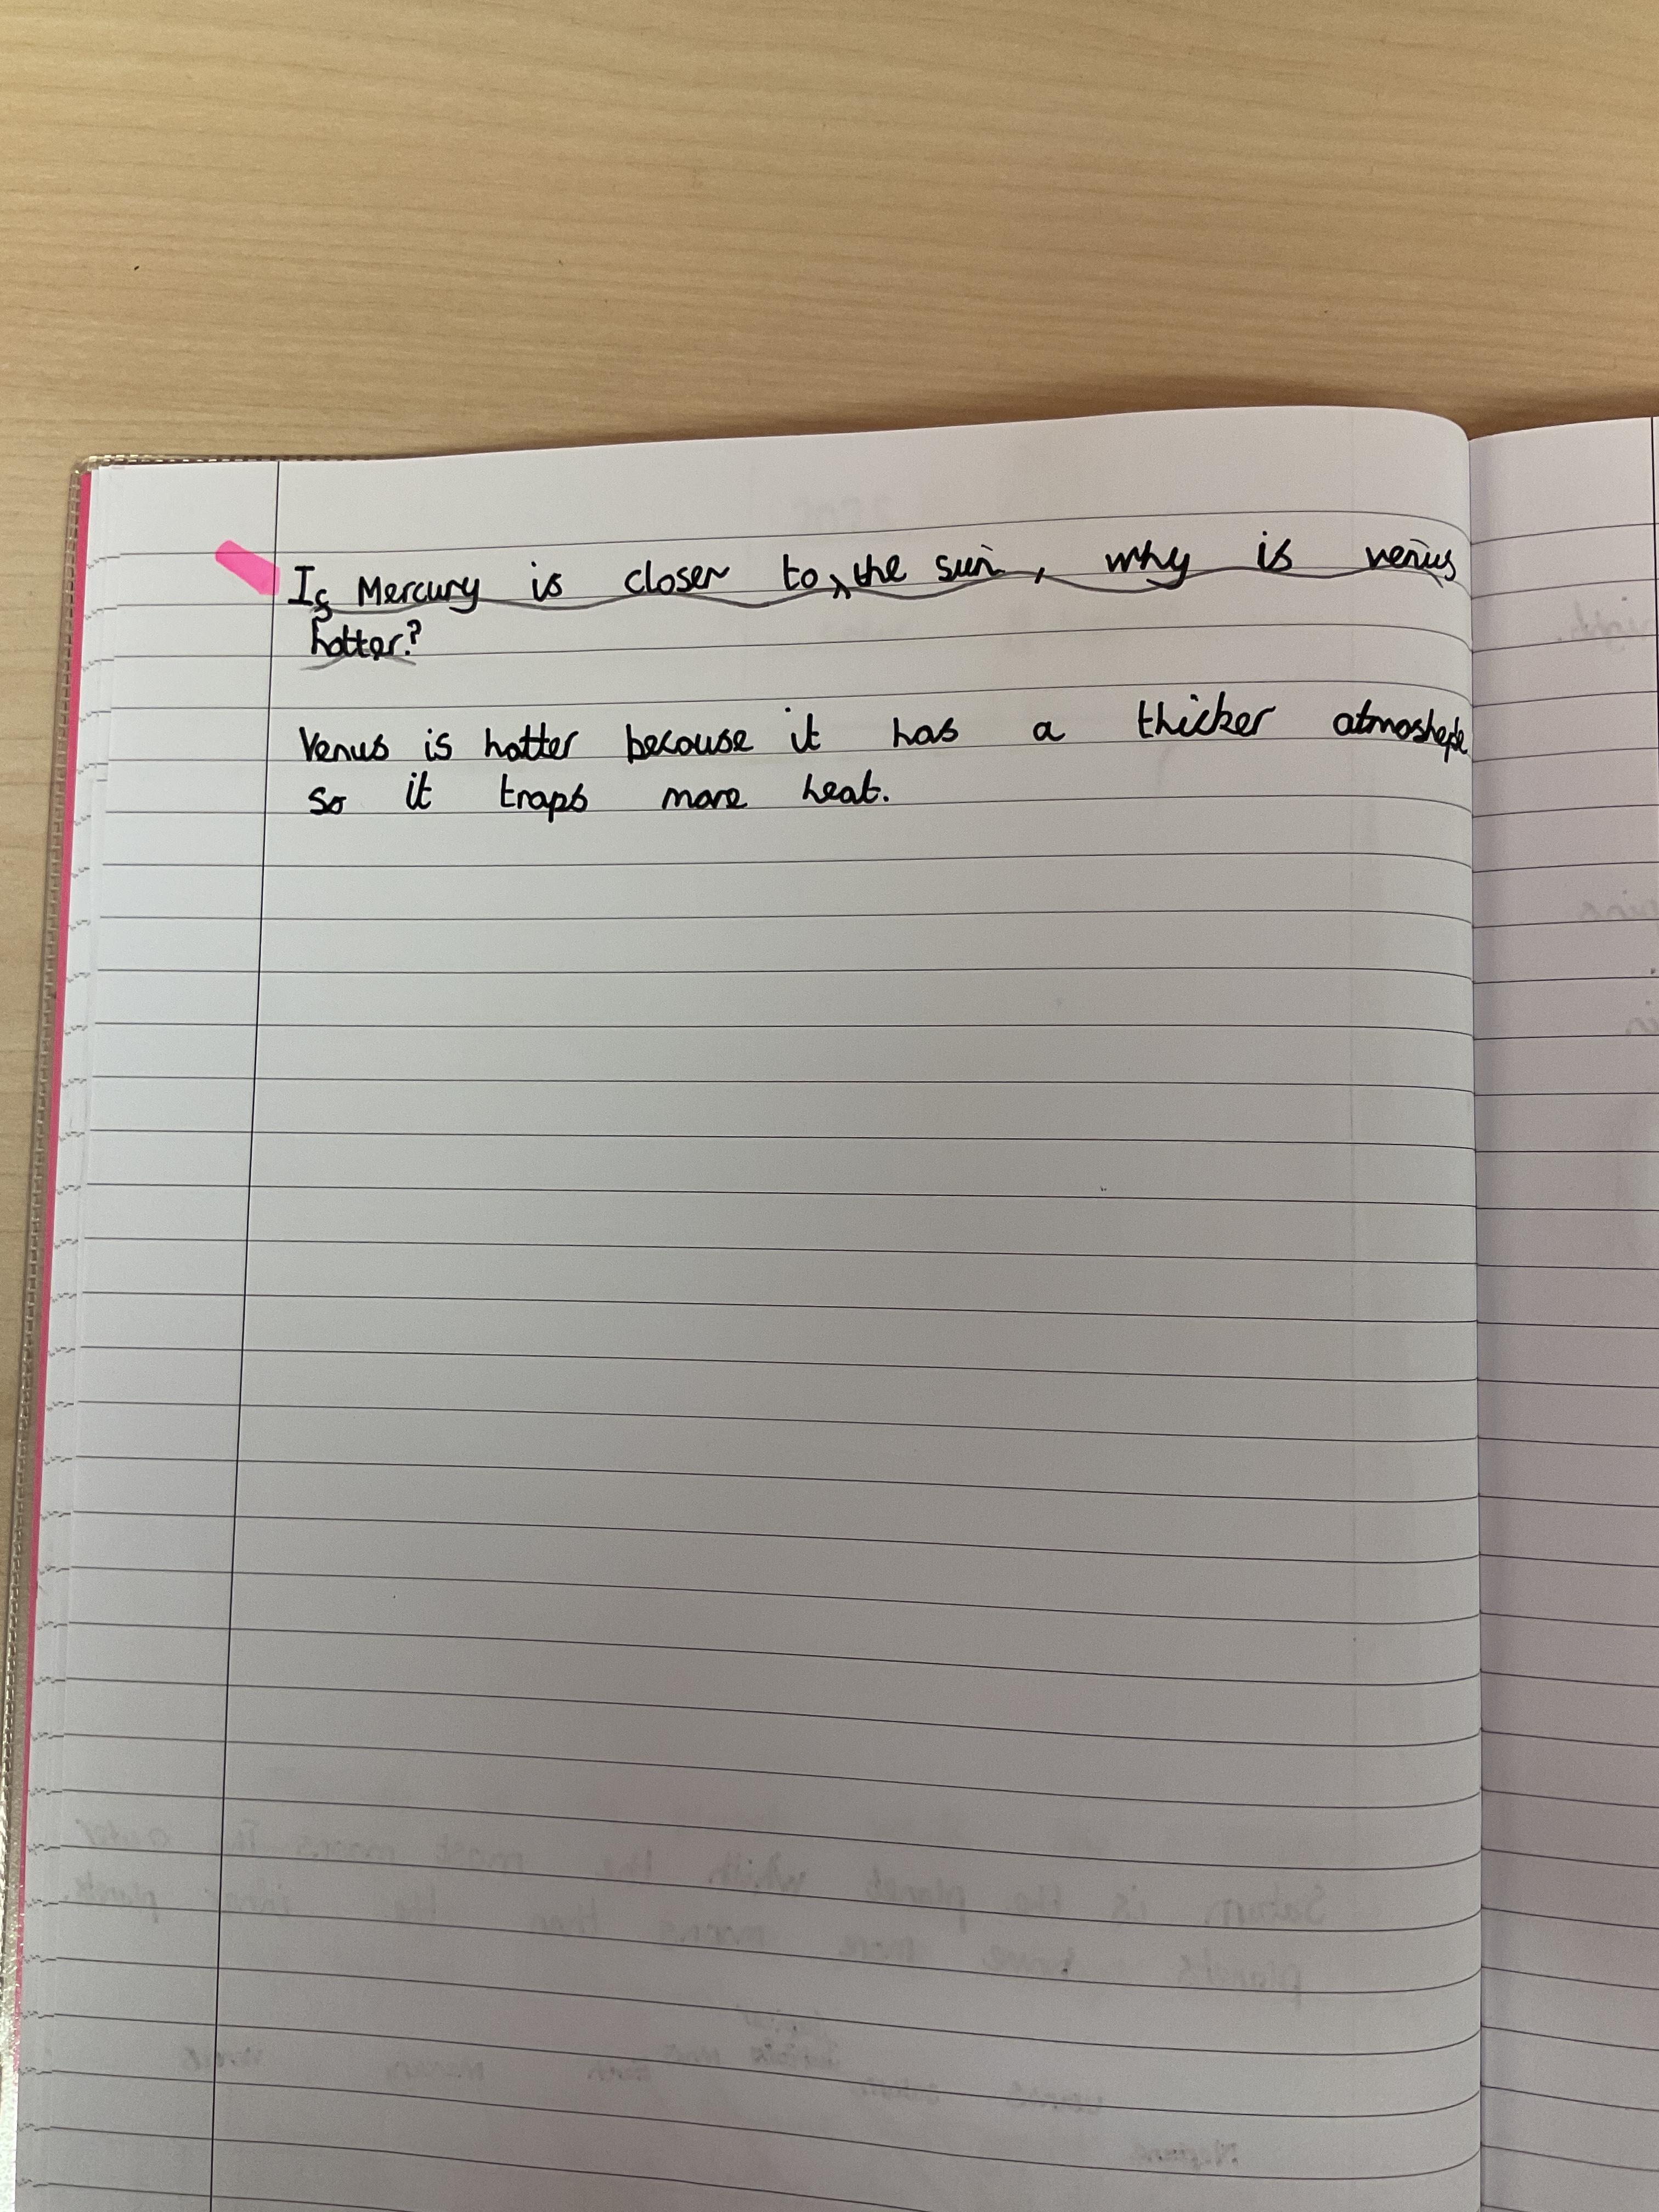 If Mercury is closer to the sun, why is venus
hotter?
Venus is hotter because it has a thicker atmoshepe
so it traps more heat.